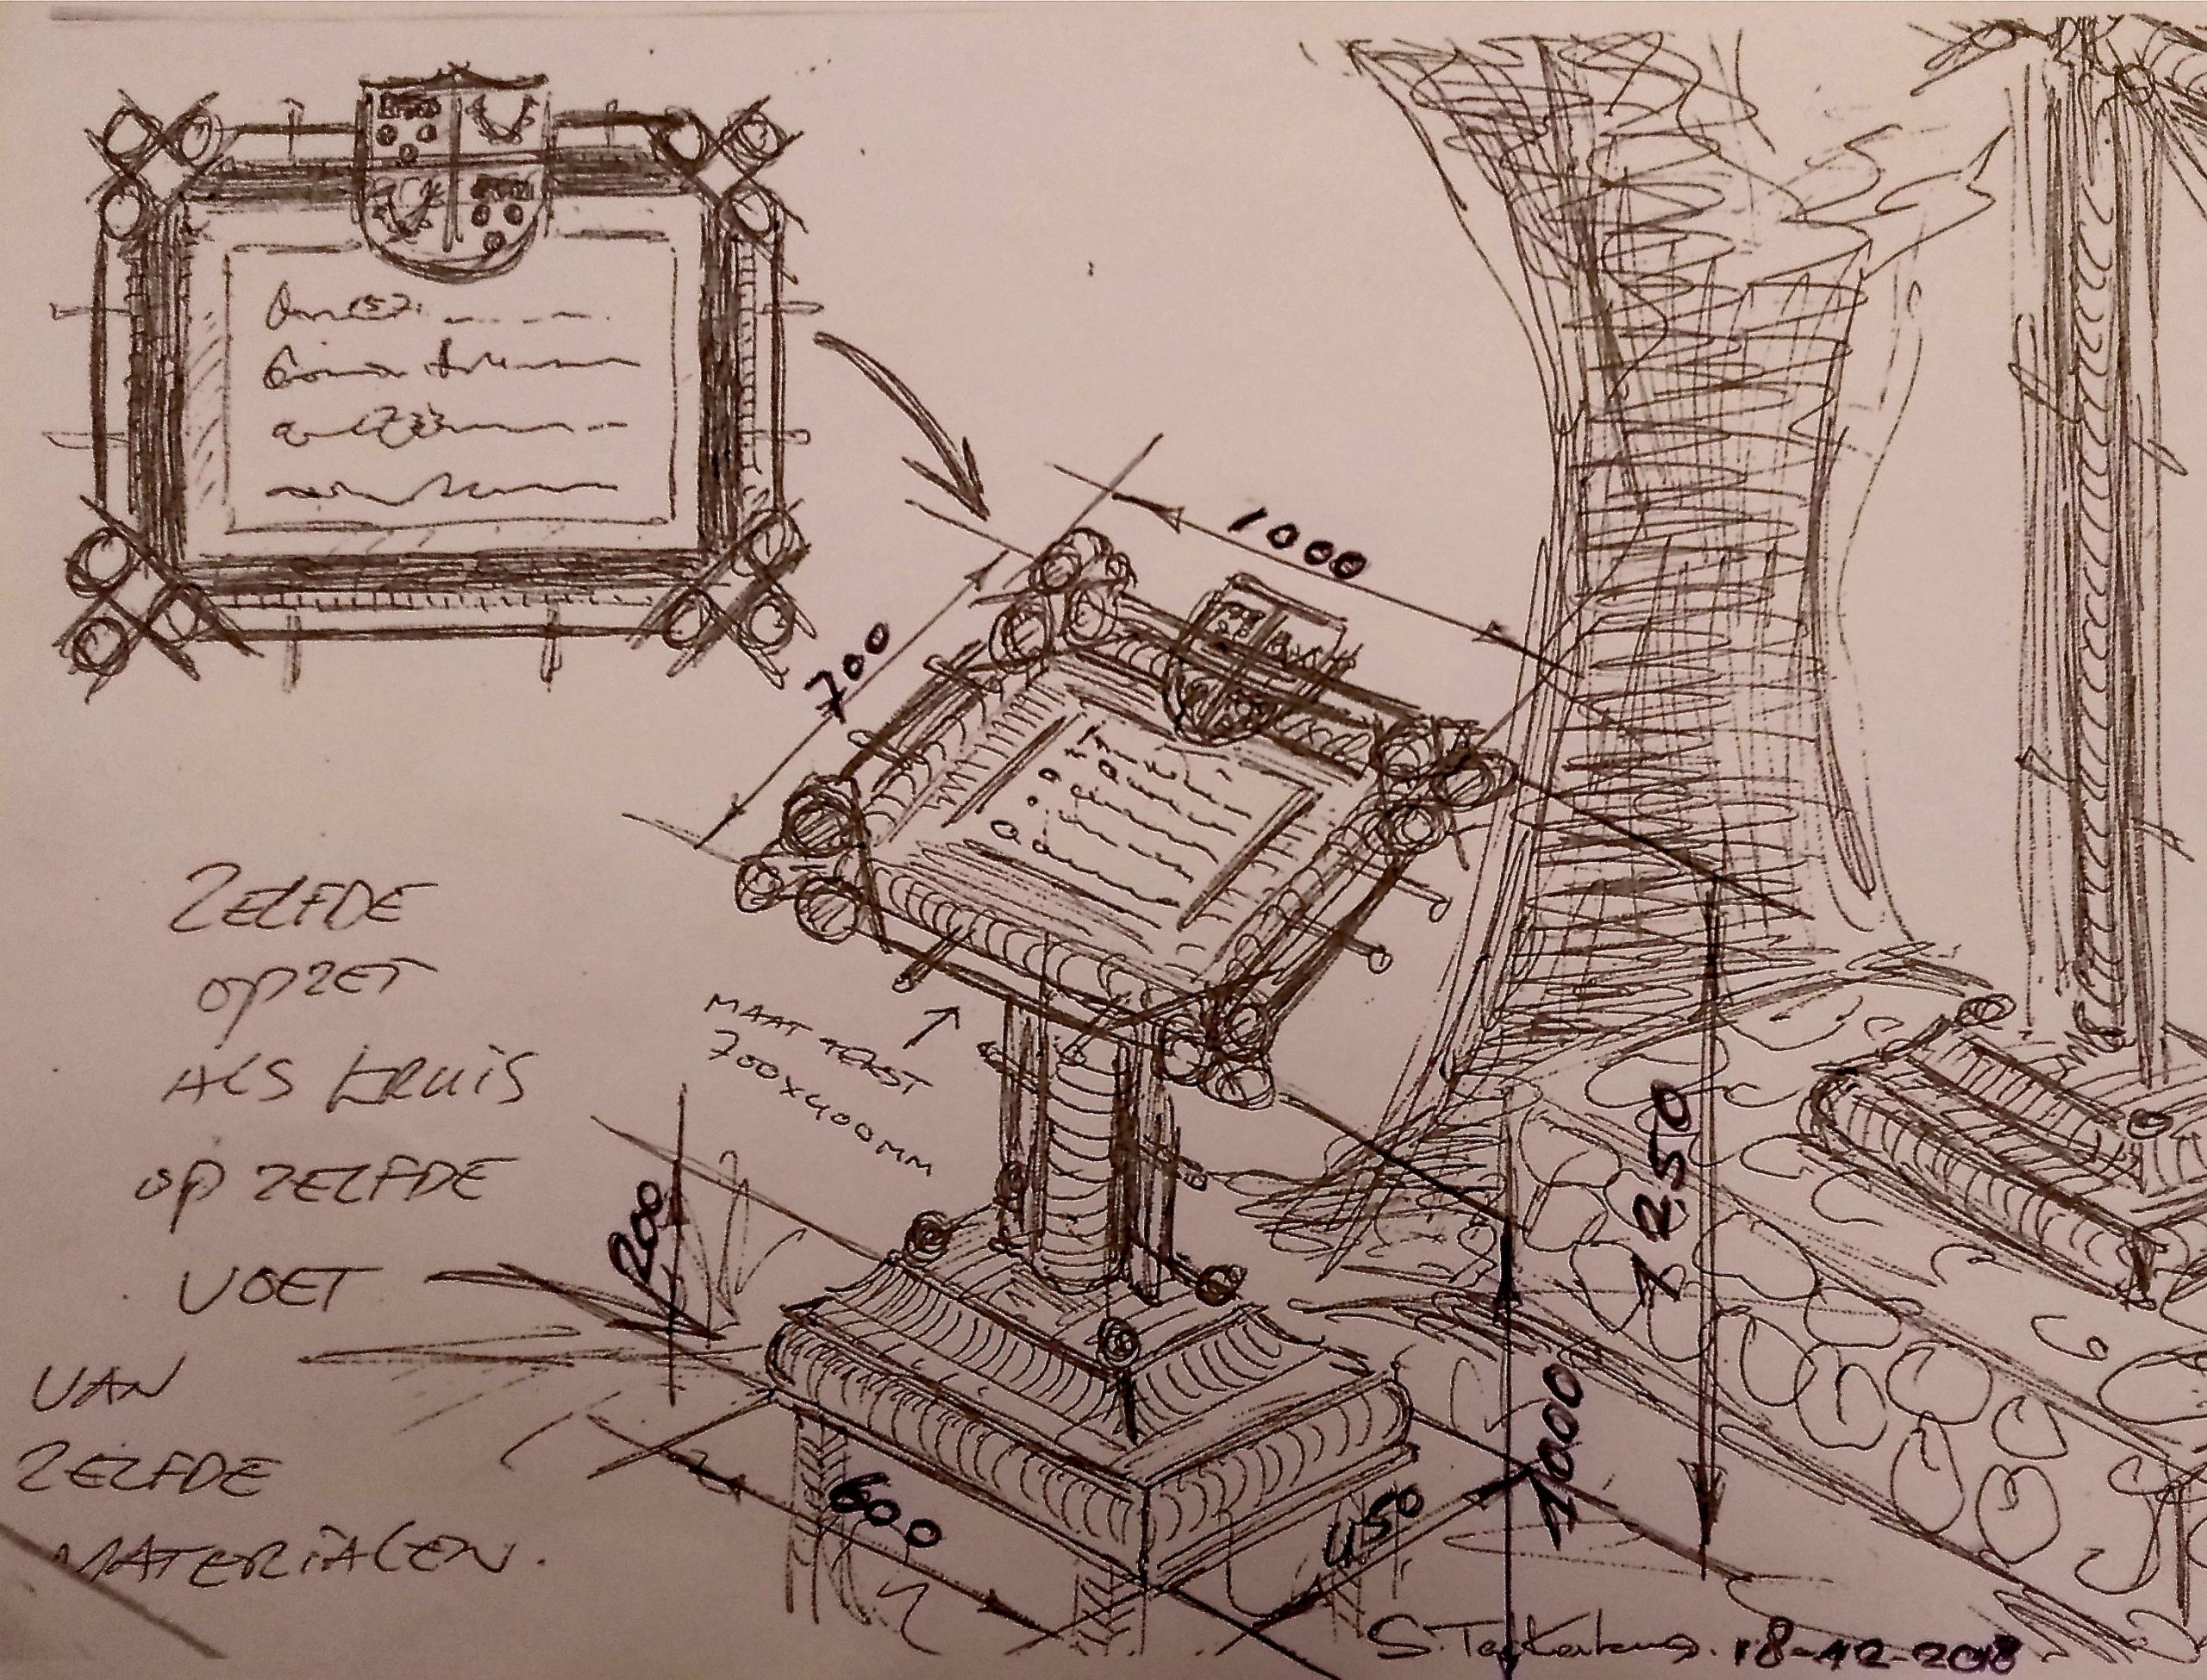 1000
700
ZELFDE
OPZET
ALS KRUIS
OP ZELFDE
VOET
VAN
ZELFDE
MATERIALEN.
MAAT TEKST
700x400MM
200
1250
1000
600
450
18-12-2018